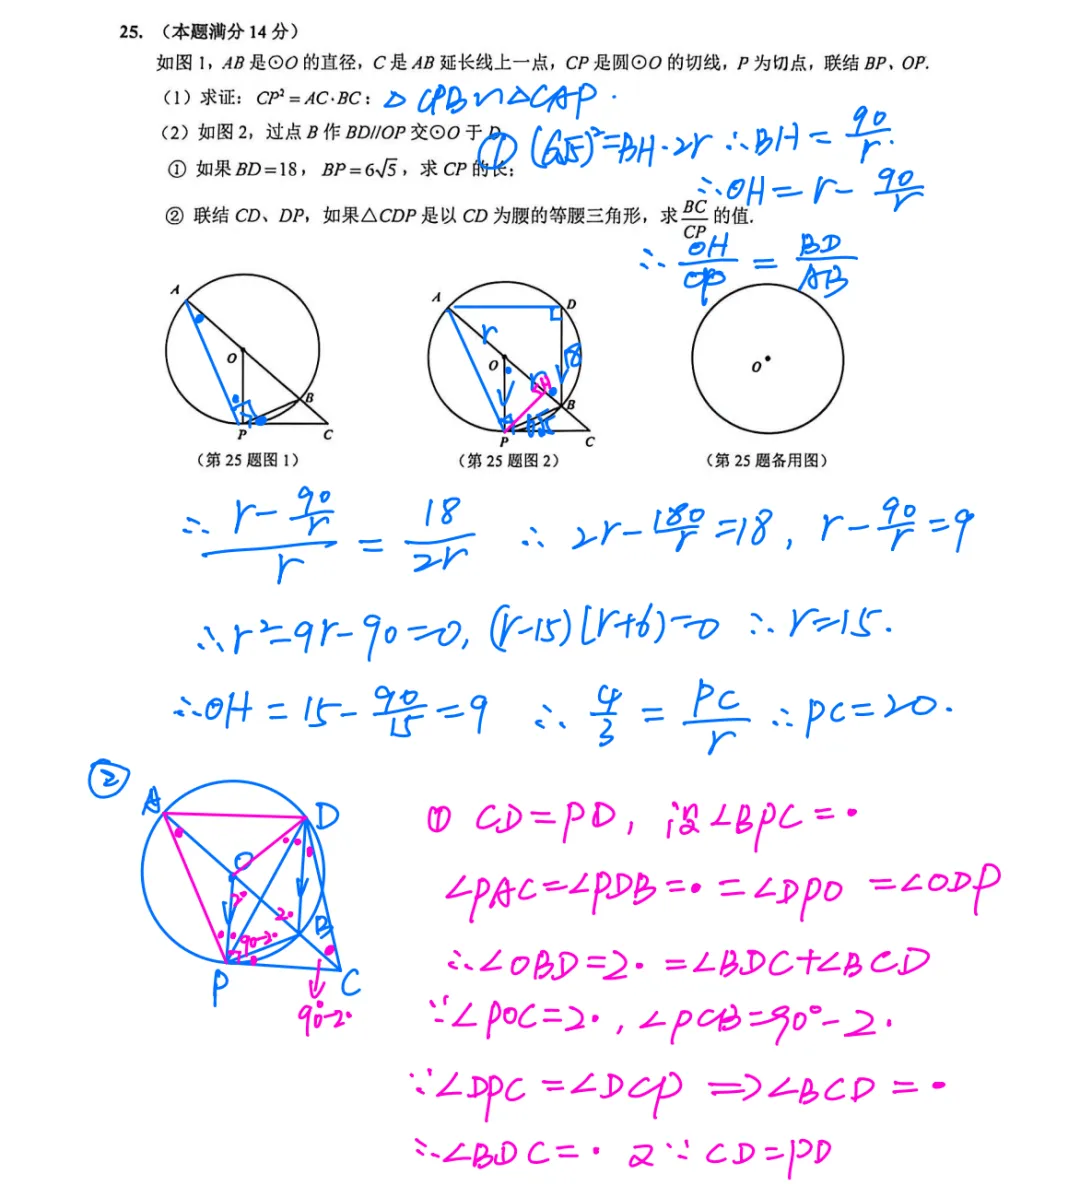 25. （本题满分 14 分）
如图 1，AB 是⊙O 的直径，C 是 AB 延长线上一点，CP 是圆⊙O 的切线，P 为切点，联结 BP、OP.
（1）求证：CP² = AC·BC； △CPB∽△CAP.
（2）如图 2，过点 B 作 BD//OP 交⊙O 于 D.
① (6√5)²=BH·2r ∴BH = 90/r.
① 如果 BD=18，BP=6√5，求 CP 的长；
∴OH = r - 90/r
② 联结 CD、DP，如果△CDP 是以 CD 为腰的等腰三角形，求 BC/CP 的值.
∴ OH/OP = BD/AB
A O B P C
A r D O H 18 B 6√5 P C
O
（第 25 题图 1） （第 25 题图 2） （第 25 题备用图）
∴ (r - 90/r)/r = 18/2r ∴ 2r - 180/r = 18, r - 90/r = 9
∴r²-9r-90=0, (r-15)(r+6)=0 ∴r=15.
∴OH = 15 - 90/15 = 9 ∴ 4/3 = PC/r ∴PC=20.
②
A D O 2· 2· B 90-2· P C
90°-2·
① CD=PD, 设∠BPC=·
∠PAC=∠PDB=·=∠DPO =∠ODP
∴∠OBD=2·=∠BDC+∠BCD
∵∠POC=2·, ∠PCB=90°-2·
∵∠DPC=∠DCP ⇒∠BCD=·
∴∠BDC=· 又∵CD=PD